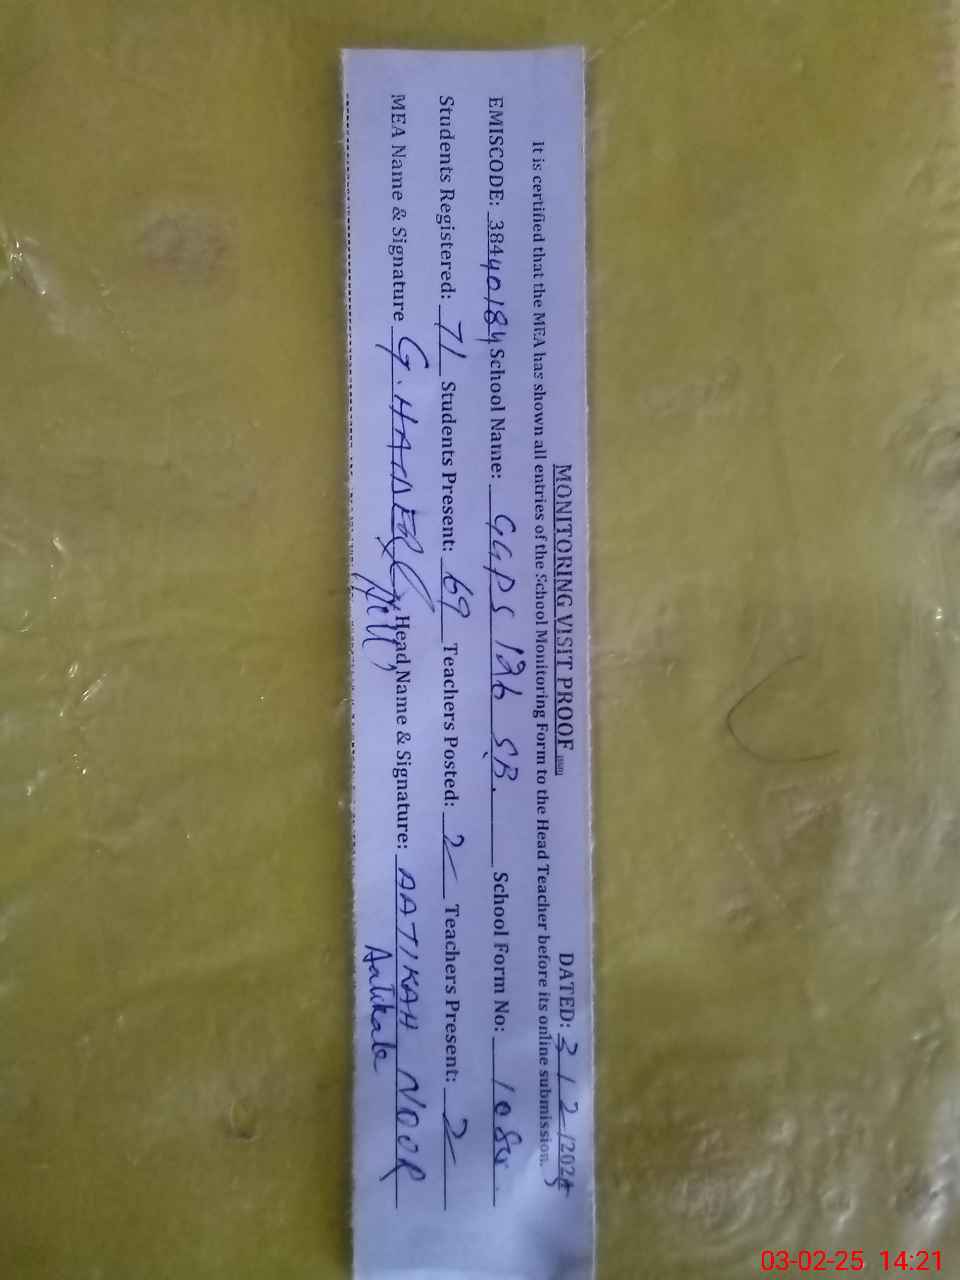 MONITORING VISIT PROOF DATED: 3/2/2025
It is certified that the MEA has shown all entries of the School Monitoring Form to the Head Teacher before its online submission.
EMISCODE: 38440184 School Name: GGPS 126 SB. School Form No: 1084.
Students Registered: 71 Students Present: 69 Teachers Posted: 2 Teachers Present: 2
MEA Name & Signature G. HAIDER Head Name & Signature: AATIKAH NOOR
Aatikah
03-02-25 14:21